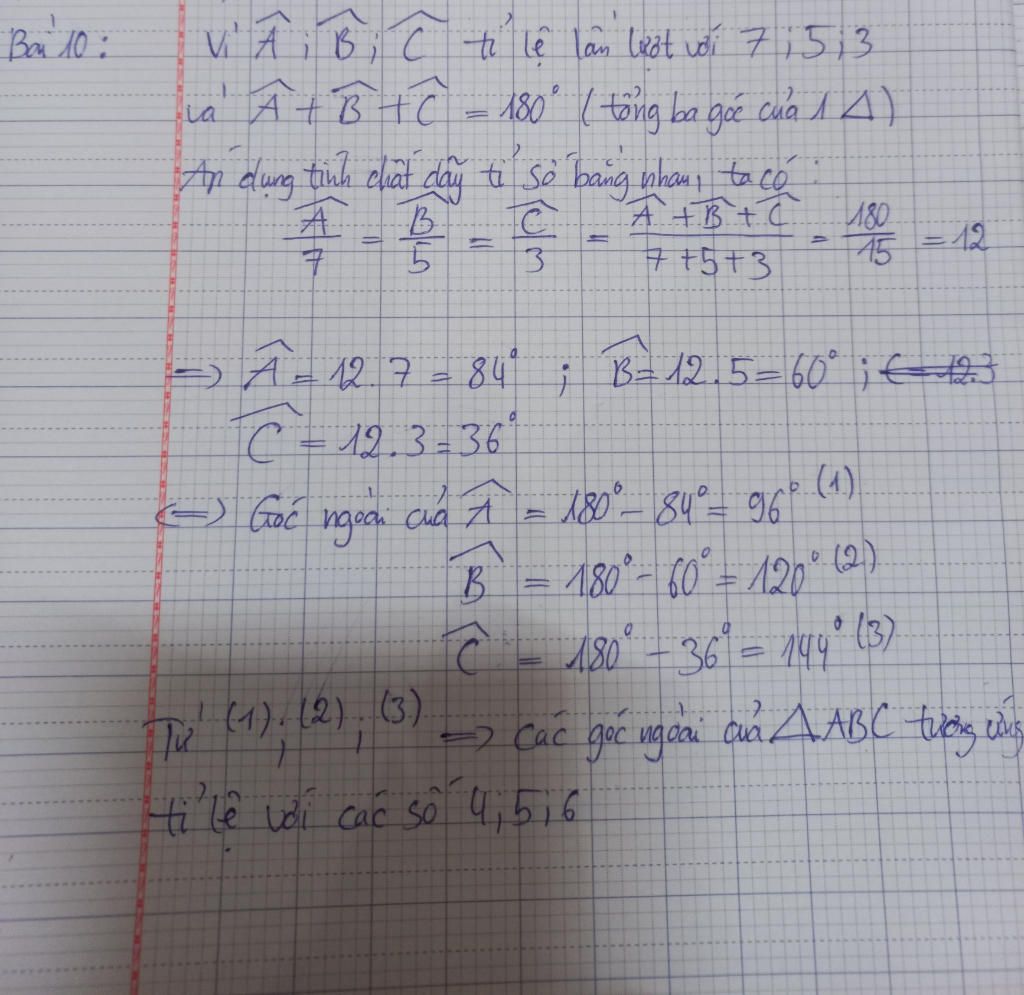 Bài 10: Vì Â ; B̂ ; Ĉ tỉ lệ lần lượt với 7 ; 5 ; 3
và Â + B̂ + Ĉ = 180° (tổng ba góc của 1 Δ)
Áp dụng tính chất dãy tỉ số bằng nhau, ta có :
Â/7 = B̂/5 = Ĉ/3 = (Â + B̂ + Ĉ)/(7+5+3) = 180/15 = 12
=> Â = 12.7 = 84° ; B̂ = 12.5 = 60° ; C = 12.3
Ĉ = 12.3 = 36°
<=> Góc ngoài của Â = 180° - 84° = 96° (1)
B̂ = 180° - 60° = 120° (2)
Ĉ = 180° - 36° = 144° (3)
Từ (1) ; (2) ; (3) => các góc ngoài của Δ ABC tương ứng
tỉ lệ với các số 4 ; 5 ; 6